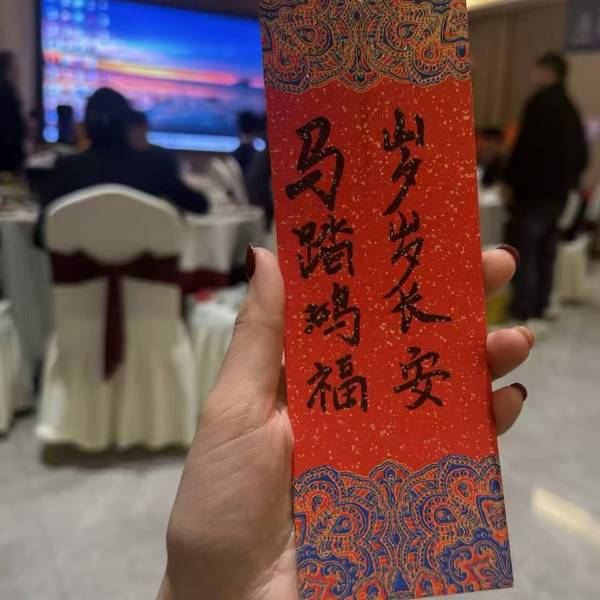 岁岁长安
马踏鸿福